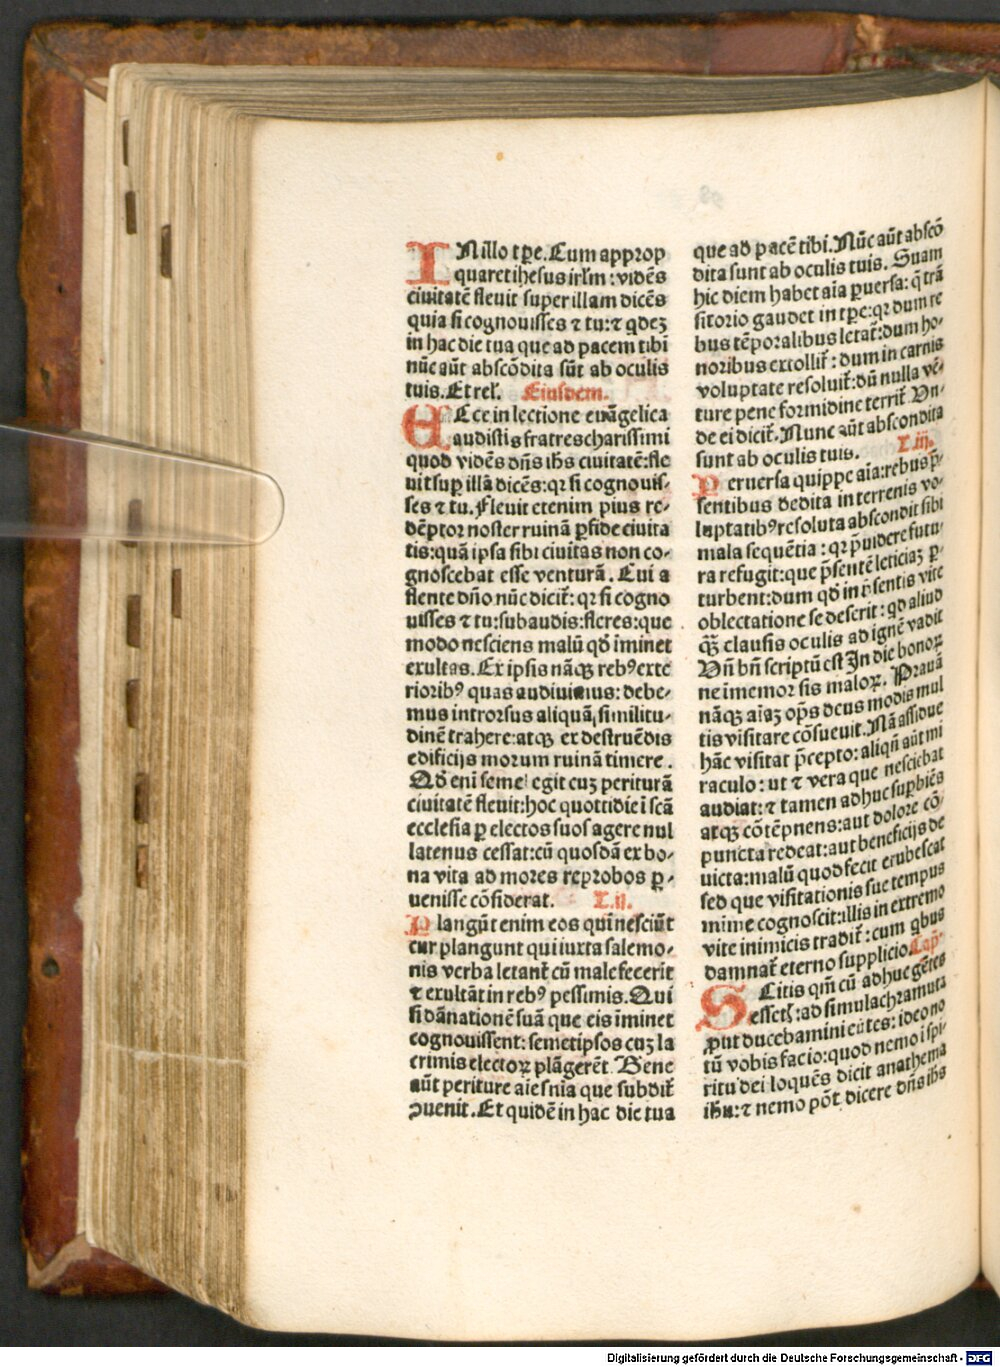 INillo tꝑe. Cum approp
quaret ihesus irlm̄: vidēs
ciuitatē fleuit super illam dicēs
quia si cognouisses ⁊ tu: ⁊ qdeꝫ
in hac die tua que ad pacem tibi
nūc aūt abscōdita sūt ab oculis
tuis. Et rel̄. Eiusdem.
ECce in lectione euāgelica
audistis fratres charissimi
quod vidēs dn̄s ihs ciuitatē: fle
uit suꝑ illā dicēs: qꝛ si cognouis⸗
ses ⁊ tu. Fleuit etenim pius re⸗
dēptor noster ruinā ꝑfide ciuita
tis: quā ipsa sibi ciuitas non co⸗
gnoscebat esse venturā. Cui a
flente dn̄o nūc dicit̄: qꝛ si cogno
uisses ⁊ tu: subaudis: fleres: que
modo nesciens malū qd̄ īminet
exultas. Ex ipsis nāqꝫ reb⁹ exte
riorib⁹ quas audiuimus: debe⸗
mus introrsus aliquā similitu⸗
dinē trahere: atqꝫ ex destruēdis
edificijs morum ruinā timere.
Qd̄ eni semel egit cuꝫ periturā
ciuitatē fleuit: hoc quottidie ī scā
ecclesia ꝑ electos suos agere nul
latenus cessat: cū quosdā ex bo⸗
na vita ad mores reprobos ꝑ⸗
uenisse cōsiderat. L.ij.
Plangūt enim eos qui nesciūt
cur plangunt qui iuxta salemo⸗
nis verba letant̄ cū male fecerīt
⁊ exultāt in reb⁹ pessimis. Qui
si dānationē suā que eis īminet
cognouissent: semetipsos cuꝫ la
crimis electoꝝ plāgerēt. Bene
aūt periture aie snīa que subdit̄
ꝯuenit. Et quidē in hac die tua
que ad pacē tibi. Nūc aūt abscō
dita sunt ab oculis tuis. Suam
hic diem habet aīa ꝑuersa: q̄ trā
sitorio gaudet in tꝑe: qꝛ dum re
bus tēporalibus letat̄: dum ho⸗
noribus extollit̄: dum in carnis
voluptate resoluit̄: dū nulla vē⸗
ture pene formidine territ̄. Vn⸗
de ei dicit̄. Nunc aūt abscondita
sunt ab oculis tuis. L.iij.
Peruersa quippe aīa: rebus p̄⸗
sentibus dedita in terrenis vo⸗
luptatib⁹ resoluta abscondit sibi
mala sequētia: qꝛ p̄uidere futu⸗
ra refugit: que p̄sentē leticiaꝫ ꝑ⸗
turbent: dum qd̄ in p̄sentis vite
oblectatione se deserit: qd aliud
qꝫ̄ clausis oculis ad ignē vadit
Vn̄ bn̄ scriptū est In die bonoꝝ
ne imemor sis maloꝝ. Prauā
nāqꝫ aīaꝫ op̄s deus modis mul
tis visitare cōsueuit. Nā assidue
hāc visitat p̄cepto: aliqn̄ aūt mi
raculo: ut ⁊ vera que nesciebat
audiat: ⁊ tamen adhuc suꝑbiēs
atqꝫ cōtēpnens: aut dolore cō⸗
puncta redeat: aut beneficijs de
uicta: malū quod fecit erubescat
sed que visitationis sue tempus
mīme cognoscit: illis in extremo
vite inimicis tradit̄: cum qbus
damnat̄ eterno supplicio. Cap̄.
SCitis qm̄ cū adhuc gētes
essetꝭ: ad simulachra muta
ꝓut ducebamini eūtes: ideo no
tū vobis facio: quod nemo ī spi
ritu dei loquēs dicit anathema
ihu: ⁊ nemo pōt dicere dn̄s ihs
Digitalisierung gefördert durch die Deutsche Forschungsgemeinschaft - DFG